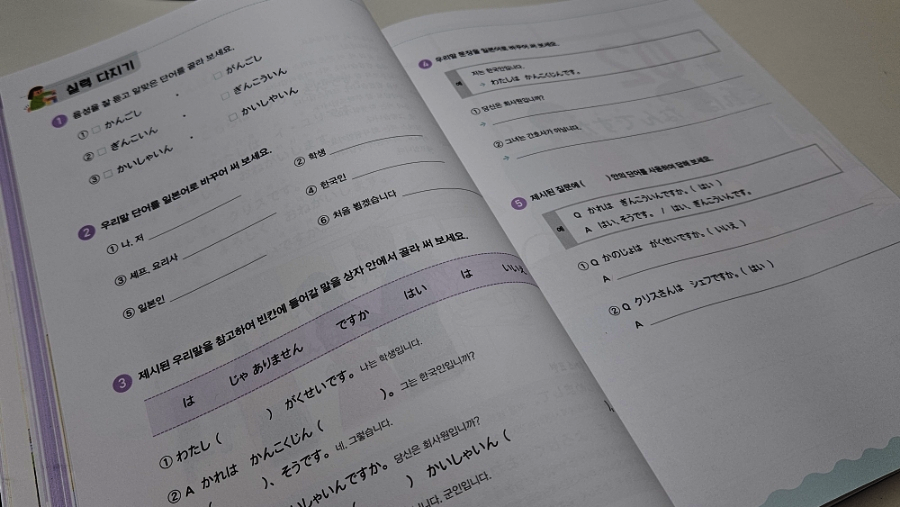 실력 다지기
1 음성을 잘 듣고 알맞은 단어를 골라 보세요.
① □ かんごし · □ がんごし
② □ ぎんこいん · □ ぎんこういん
③ □ かいしゃいん · □ かいしゃいん
2 우리말 단어를 일본어로 바꾸어 써 보세요.
① 나, 저
② 학생
③ 셰프, 요리사
④ 한국인
⑤ 일본인
⑥ 처음 뵙겠습니다
3 제시된 우리말을 참고하여 빈칸에 들어갈 말을 상자 안에서 골라 써 보세요.
は じゃ ありません ですか はい は いいえ
① わたし ( ) がくせいです。 나는 학생입니다.
② A かれは かんこくじん ( )。 그는 한국인입니까?
( )、そうです。 네, 그렇습니다.
いしゃいんですか。 당신은 회사원입니까?
( ) かいしゃいん (
니다. 군인입니다.
4 우리말 문장을 일본어로 바꾸어 써 보세요.
예 저는 한국인입니다.
→ わたしは かんこくじんです。
① 당신은 회사원입니까?
→
② 그녀는 간호사가 아닙니다.
→
5 제시된 질문에 ( ) 안의 단어를 사용하여 답해 보세요.
예 Q かれは ぎんこういんですか。( はい )
A はい、そうです。 / はい、ぎんこういんです。
① Q かのじょは がくせいですか。( いいえ )
A
② Q クリスさんは シェフですか。( はい )
A